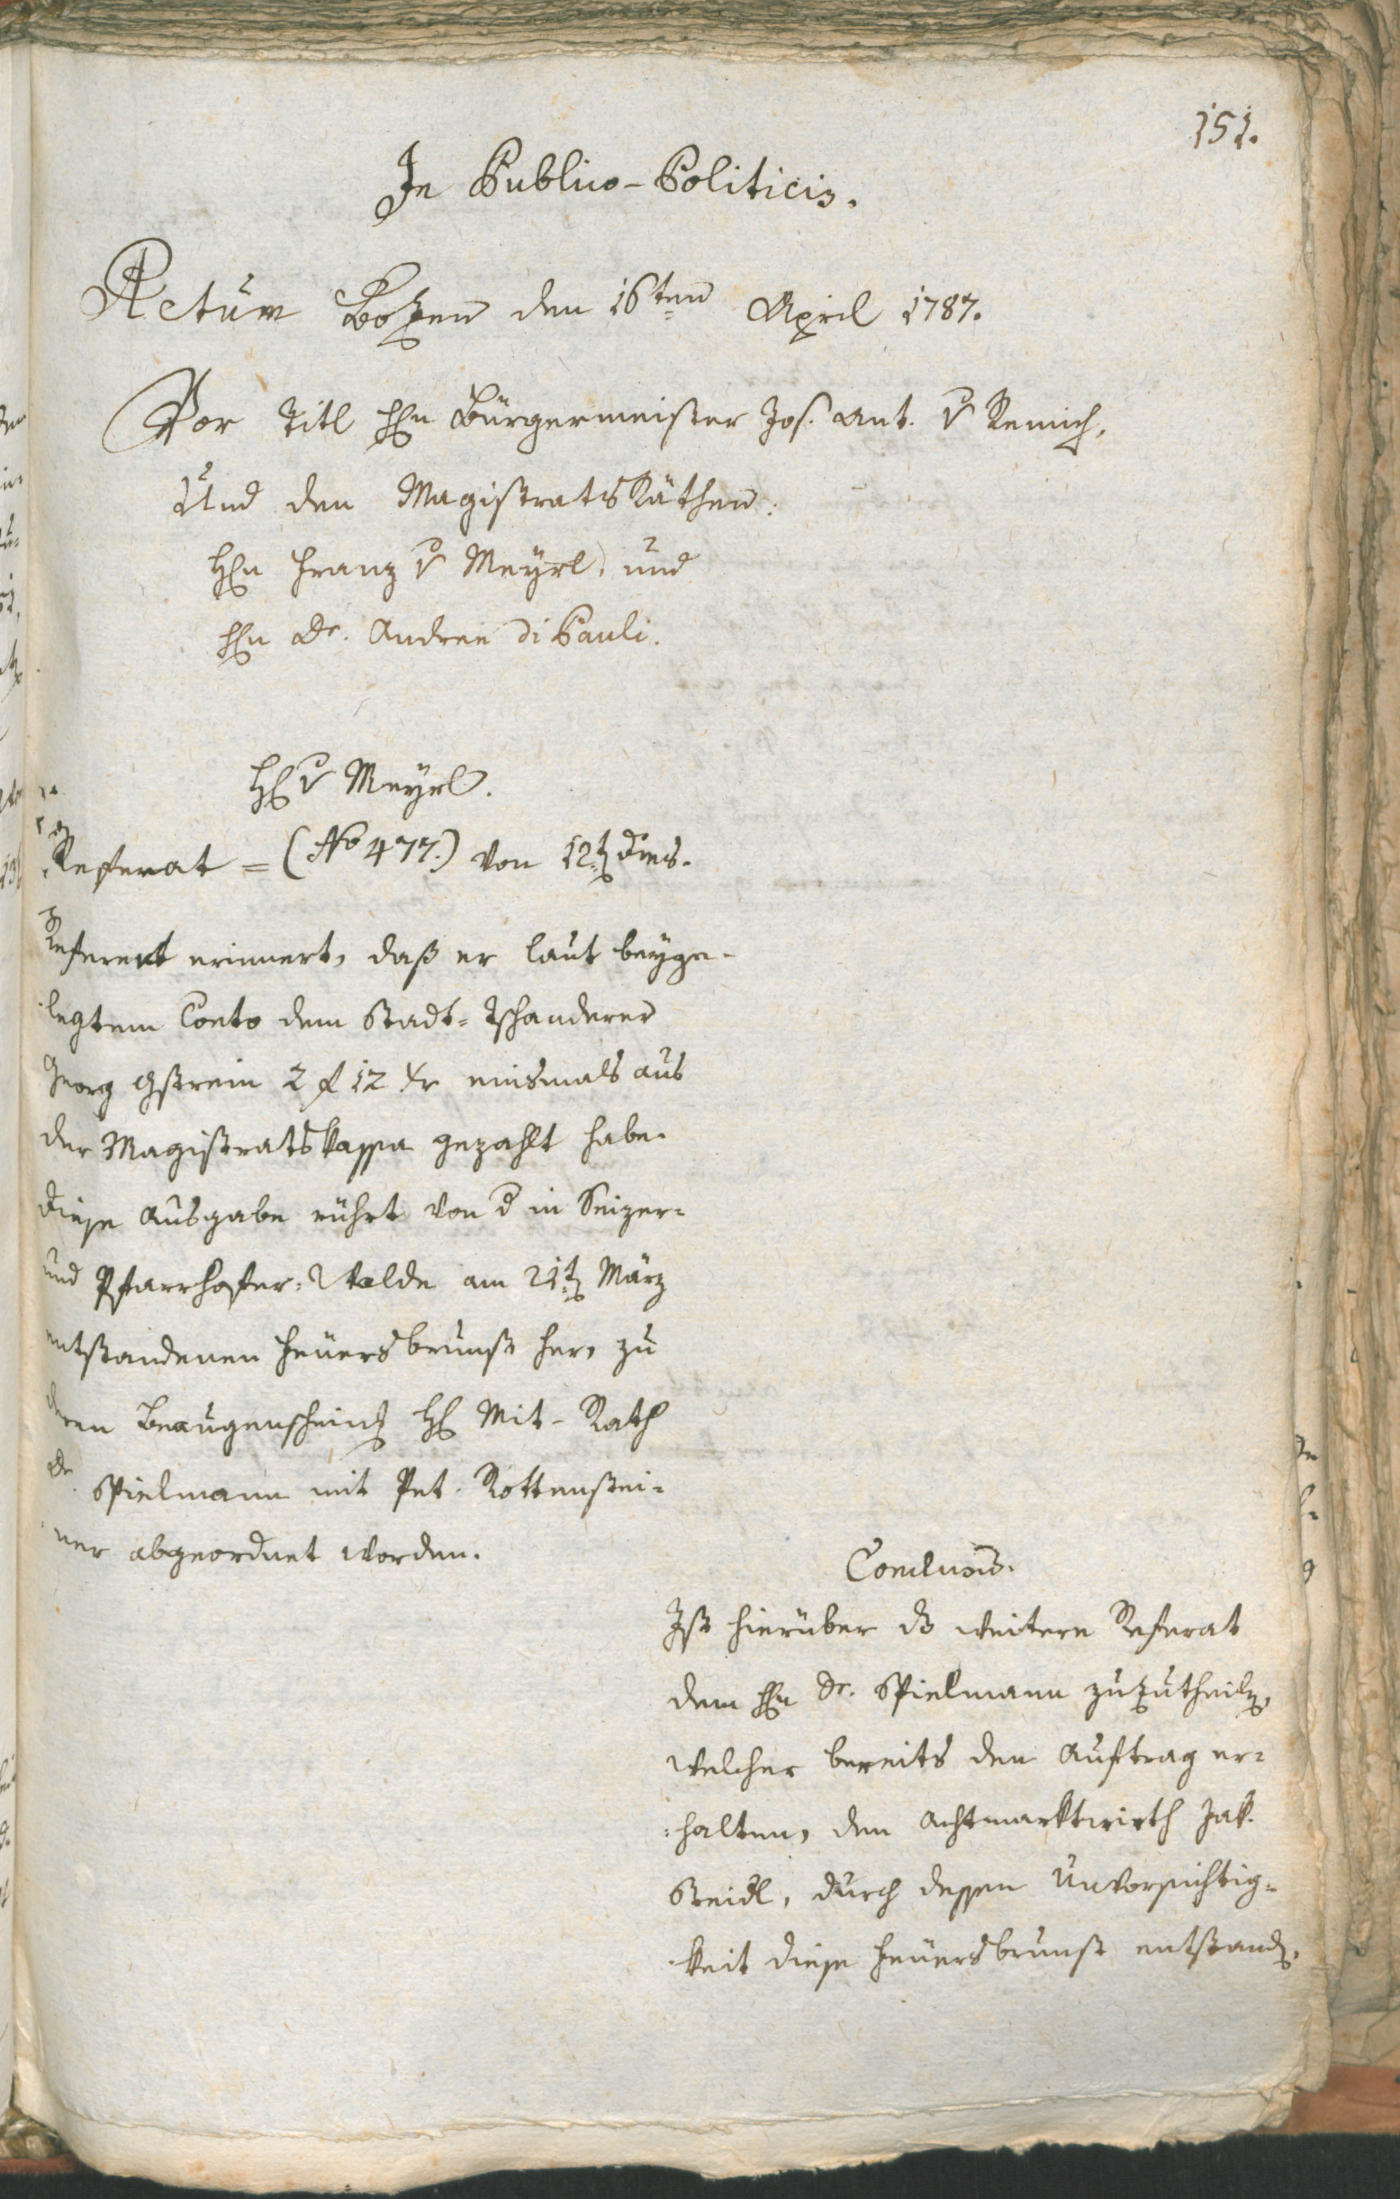 151.
In Publico-Politicis.
Actum Bozen den 16ten April 1787.
Vor Titl Hn Bürgermeister Jos. Ant. v Remich,
Und den MagistratsRäthen:
Hn Franz v Meyrl, und
Hn Dr. Andree di Pauli.
H v Meyrl.
Referat = (No 477.) von 12t Dies.
Referent erinnert, daß er laut beyge-
legtem Conto dem Stadt-Tschanderer
Georg Gstrein 2 f 12 xr einsmals aus
der Magistratskassa gezahlt habe.
diese Ausgabe rührt von d in Seizer-
und Pfarrhofer-Walde am 21t März
entstandenen Feüersbrunst her, zu
deren Beaugenschein H Mit-Rath
Dr. Spielmann mit Pet. Rottenstei-
ner abgeordnet worden.
Conclusus.
Ist hierüber ds weitere Referat
dem Hn Dr. Spielmann zuzutheiln,
welcher bereits den Auftrag er-
halten, den Achtmarktwirth Jak.
Steidl, durch dessen Unvorsichtig-
keit diese Feüersbrunst entstand,